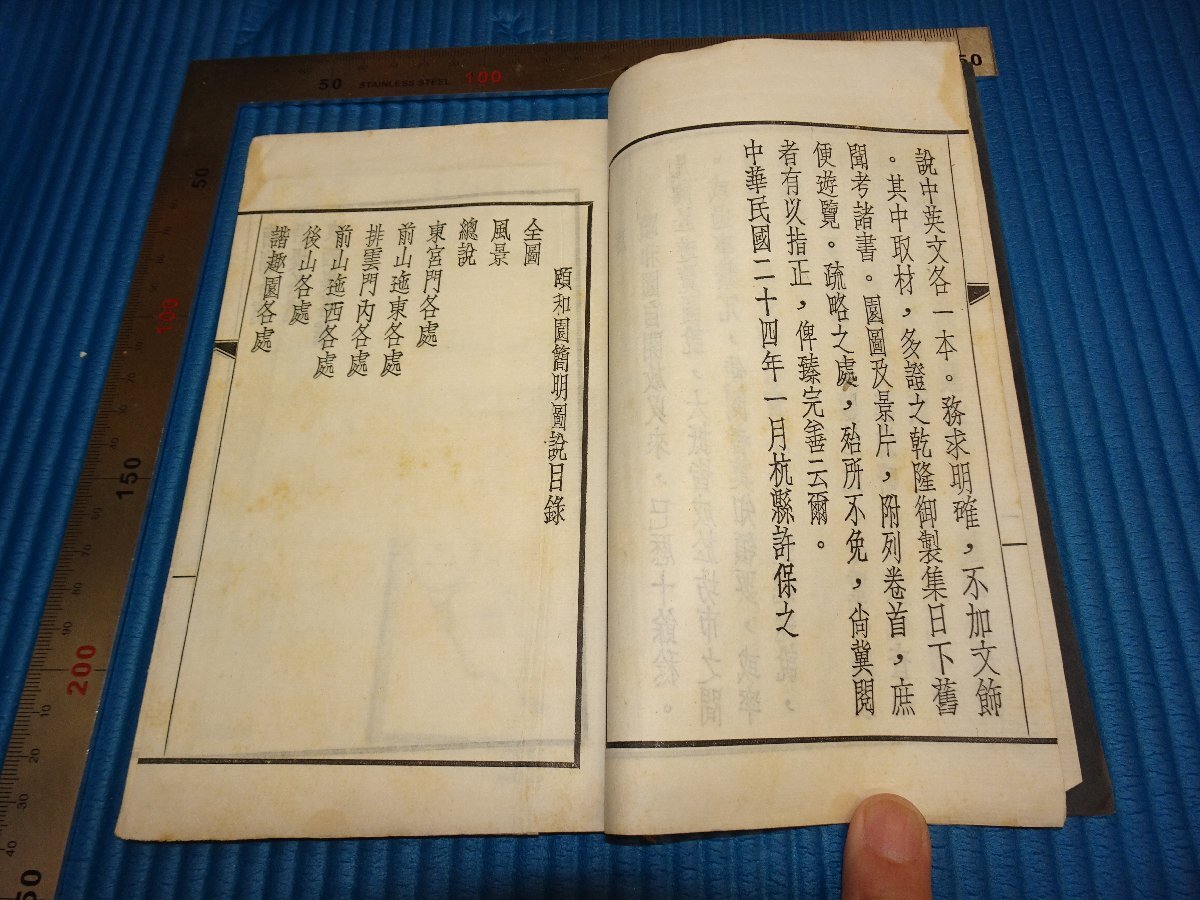 說中英文各一本。務求明確,不加文飾
。其中取材,多證之乾隆御製集日下舊
聞考諸書。園圖及景片,附列卷首,庶
便遊覽。疏略之處,殆所不免,尙冀閱
者有以指正,俾臻完善云爾。
中華民國二十四年一月杭縣許保之
頤和園簡明圖說目錄
全圖
風景
總說
東宮門各處
前山迤東各處
排雲門內各處
前山迤西各處
後山各處
諧趣園各處
50
STAINLESS STEEL
100
50
50
100
150
200